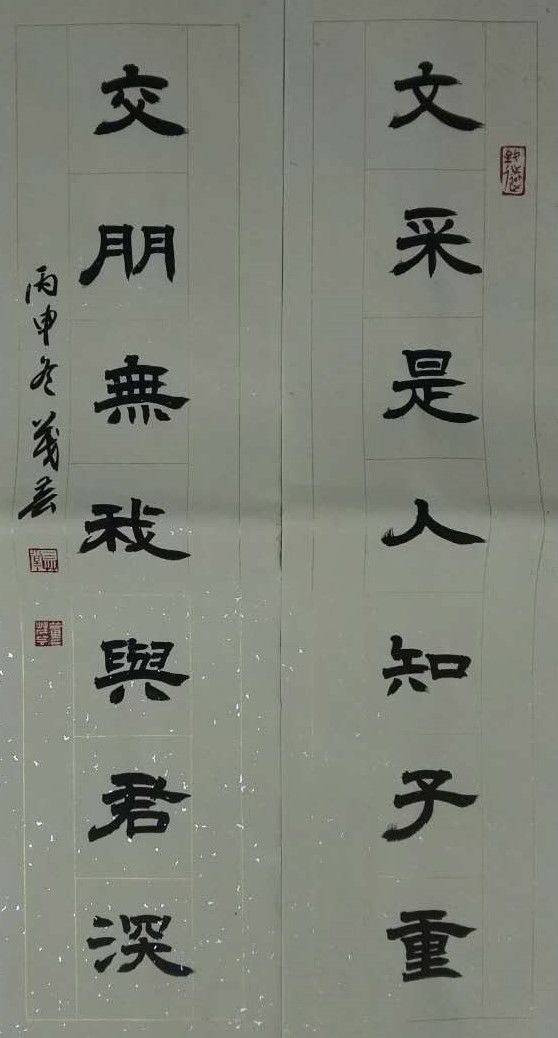 文采是人知子重
交朋無我與君深
丙申冬